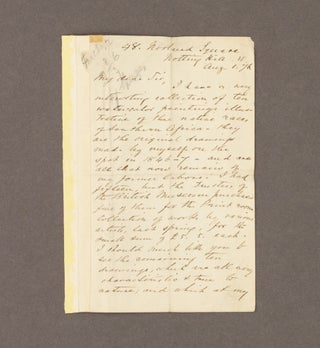 48. Norland Square
Notting Hill. W.
Aug 1. 76
My dear Sir,
I have a very
interesting collection of ten
watercolor paintings illus-
trative of the native races
of Southern Africa - they
are the original drawings
made by myself on the
spot in 1846-7 - and are
all that now remains of
my former Cabinet. I had
fifteen, but the Trustees of
the British Museum purchased
five of them for the Print room
collection of works by various
artists, last spring, for the
small sum of £5. 5. each.
I should much like you to
see the remaining ten
drawings, which are all very
characteristic & true to
nature, and which at my